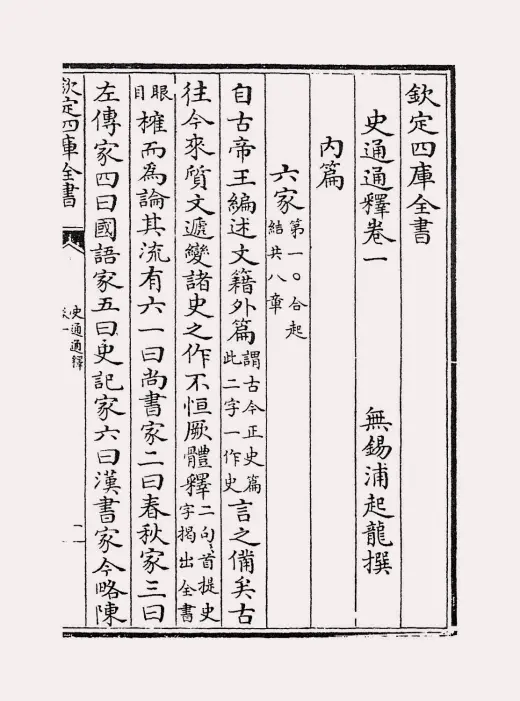 欽定四庫全書
史通通釋卷一
無錫浦起龍撰
內篇
六家第一○合起結共八章
自古帝王編述文籍外篇謂古今正史篇此二字一作史言之備矣古
往今來質文遞變諸史之作不恒厥體釋二句首提史字揭出全書
眼目榷而為論其流有六一曰尚書家二曰春秋家三曰
左傳家四曰國語家五曰史記家六曰漢書家今略陳
欽定四庫全書
史通通釋